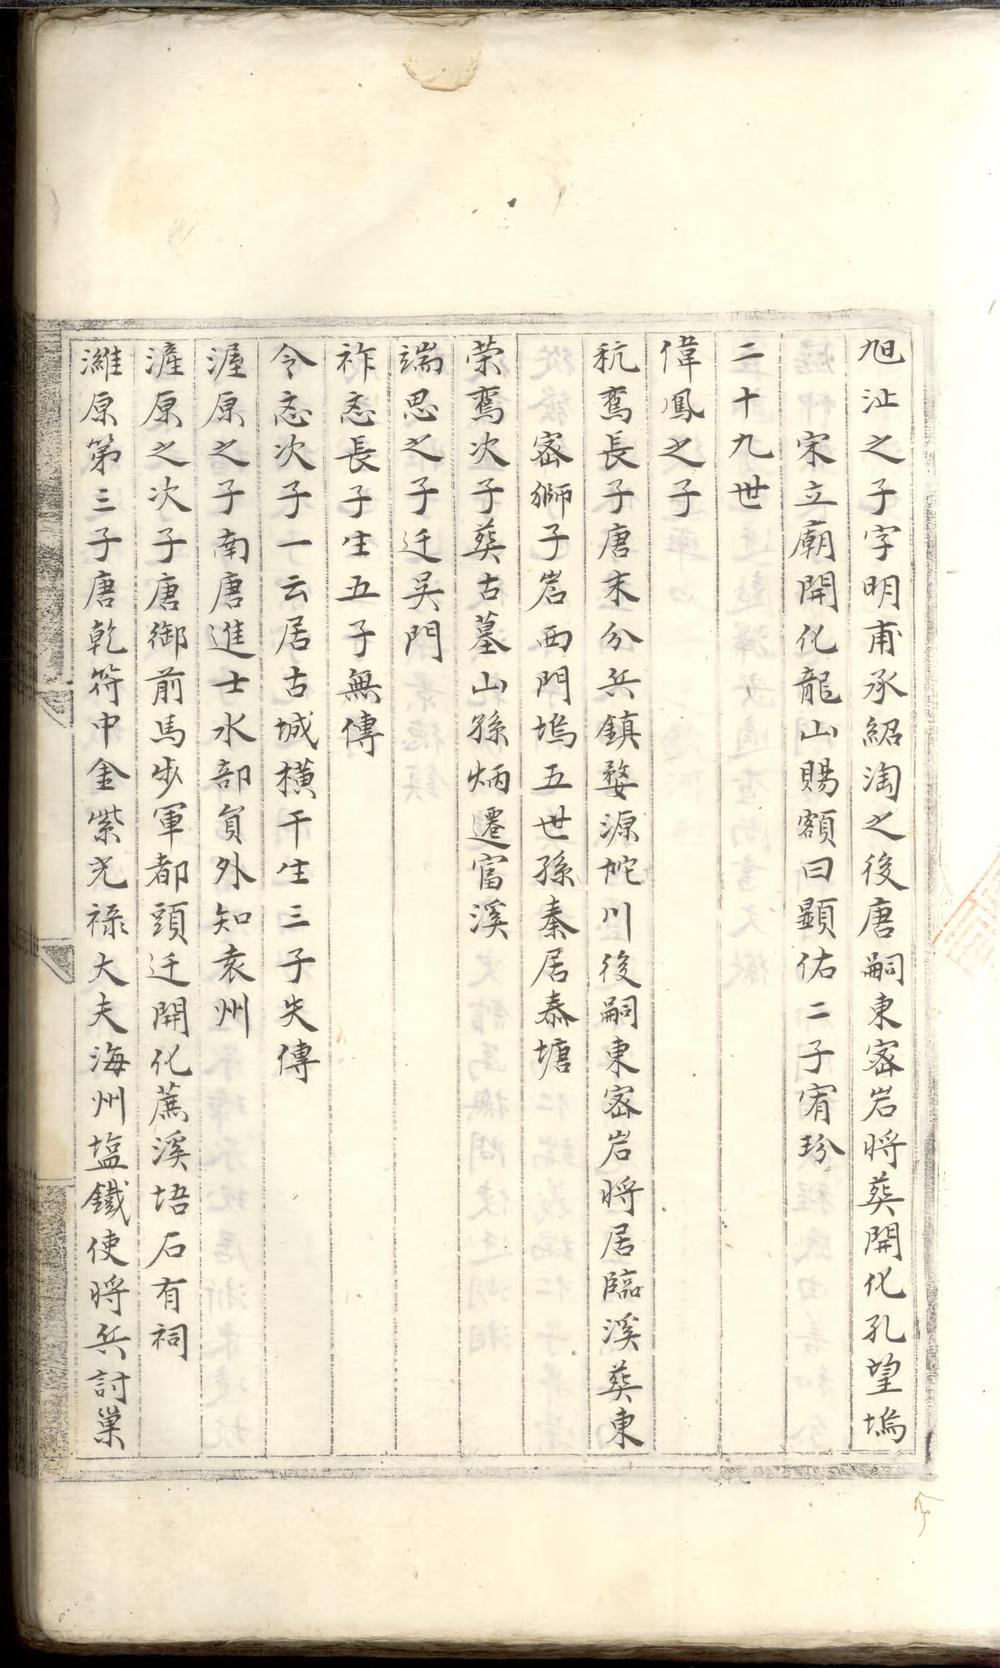 旭沚之子字明甫承紹淘之後唐嗣東密岩將葬開化孔望塢
宋立廟開化龍山賜額曰顯佑二子宥玢
二十九世
偉鳳之子
秔鸞長子唐末分兵鎮婺源坨川後嗣東密岩將居臨溪葬東
密獅子岩西門塢五世孫秦居泰塘
荣鸞次子葬古墓山孫炳遷富溪
端思之子迁吴門
祚忞長子生五子無傳
令忞次子一云居古城橫干生三子失傳
渥原之子南唐進士水部貟外知袁州
滻原之次子唐御前馬步軍都頭迁開化蔍溪垉石有祠
濰原第三子唐乾符中金紫光禄大夫海州塩鐵使將兵討巢